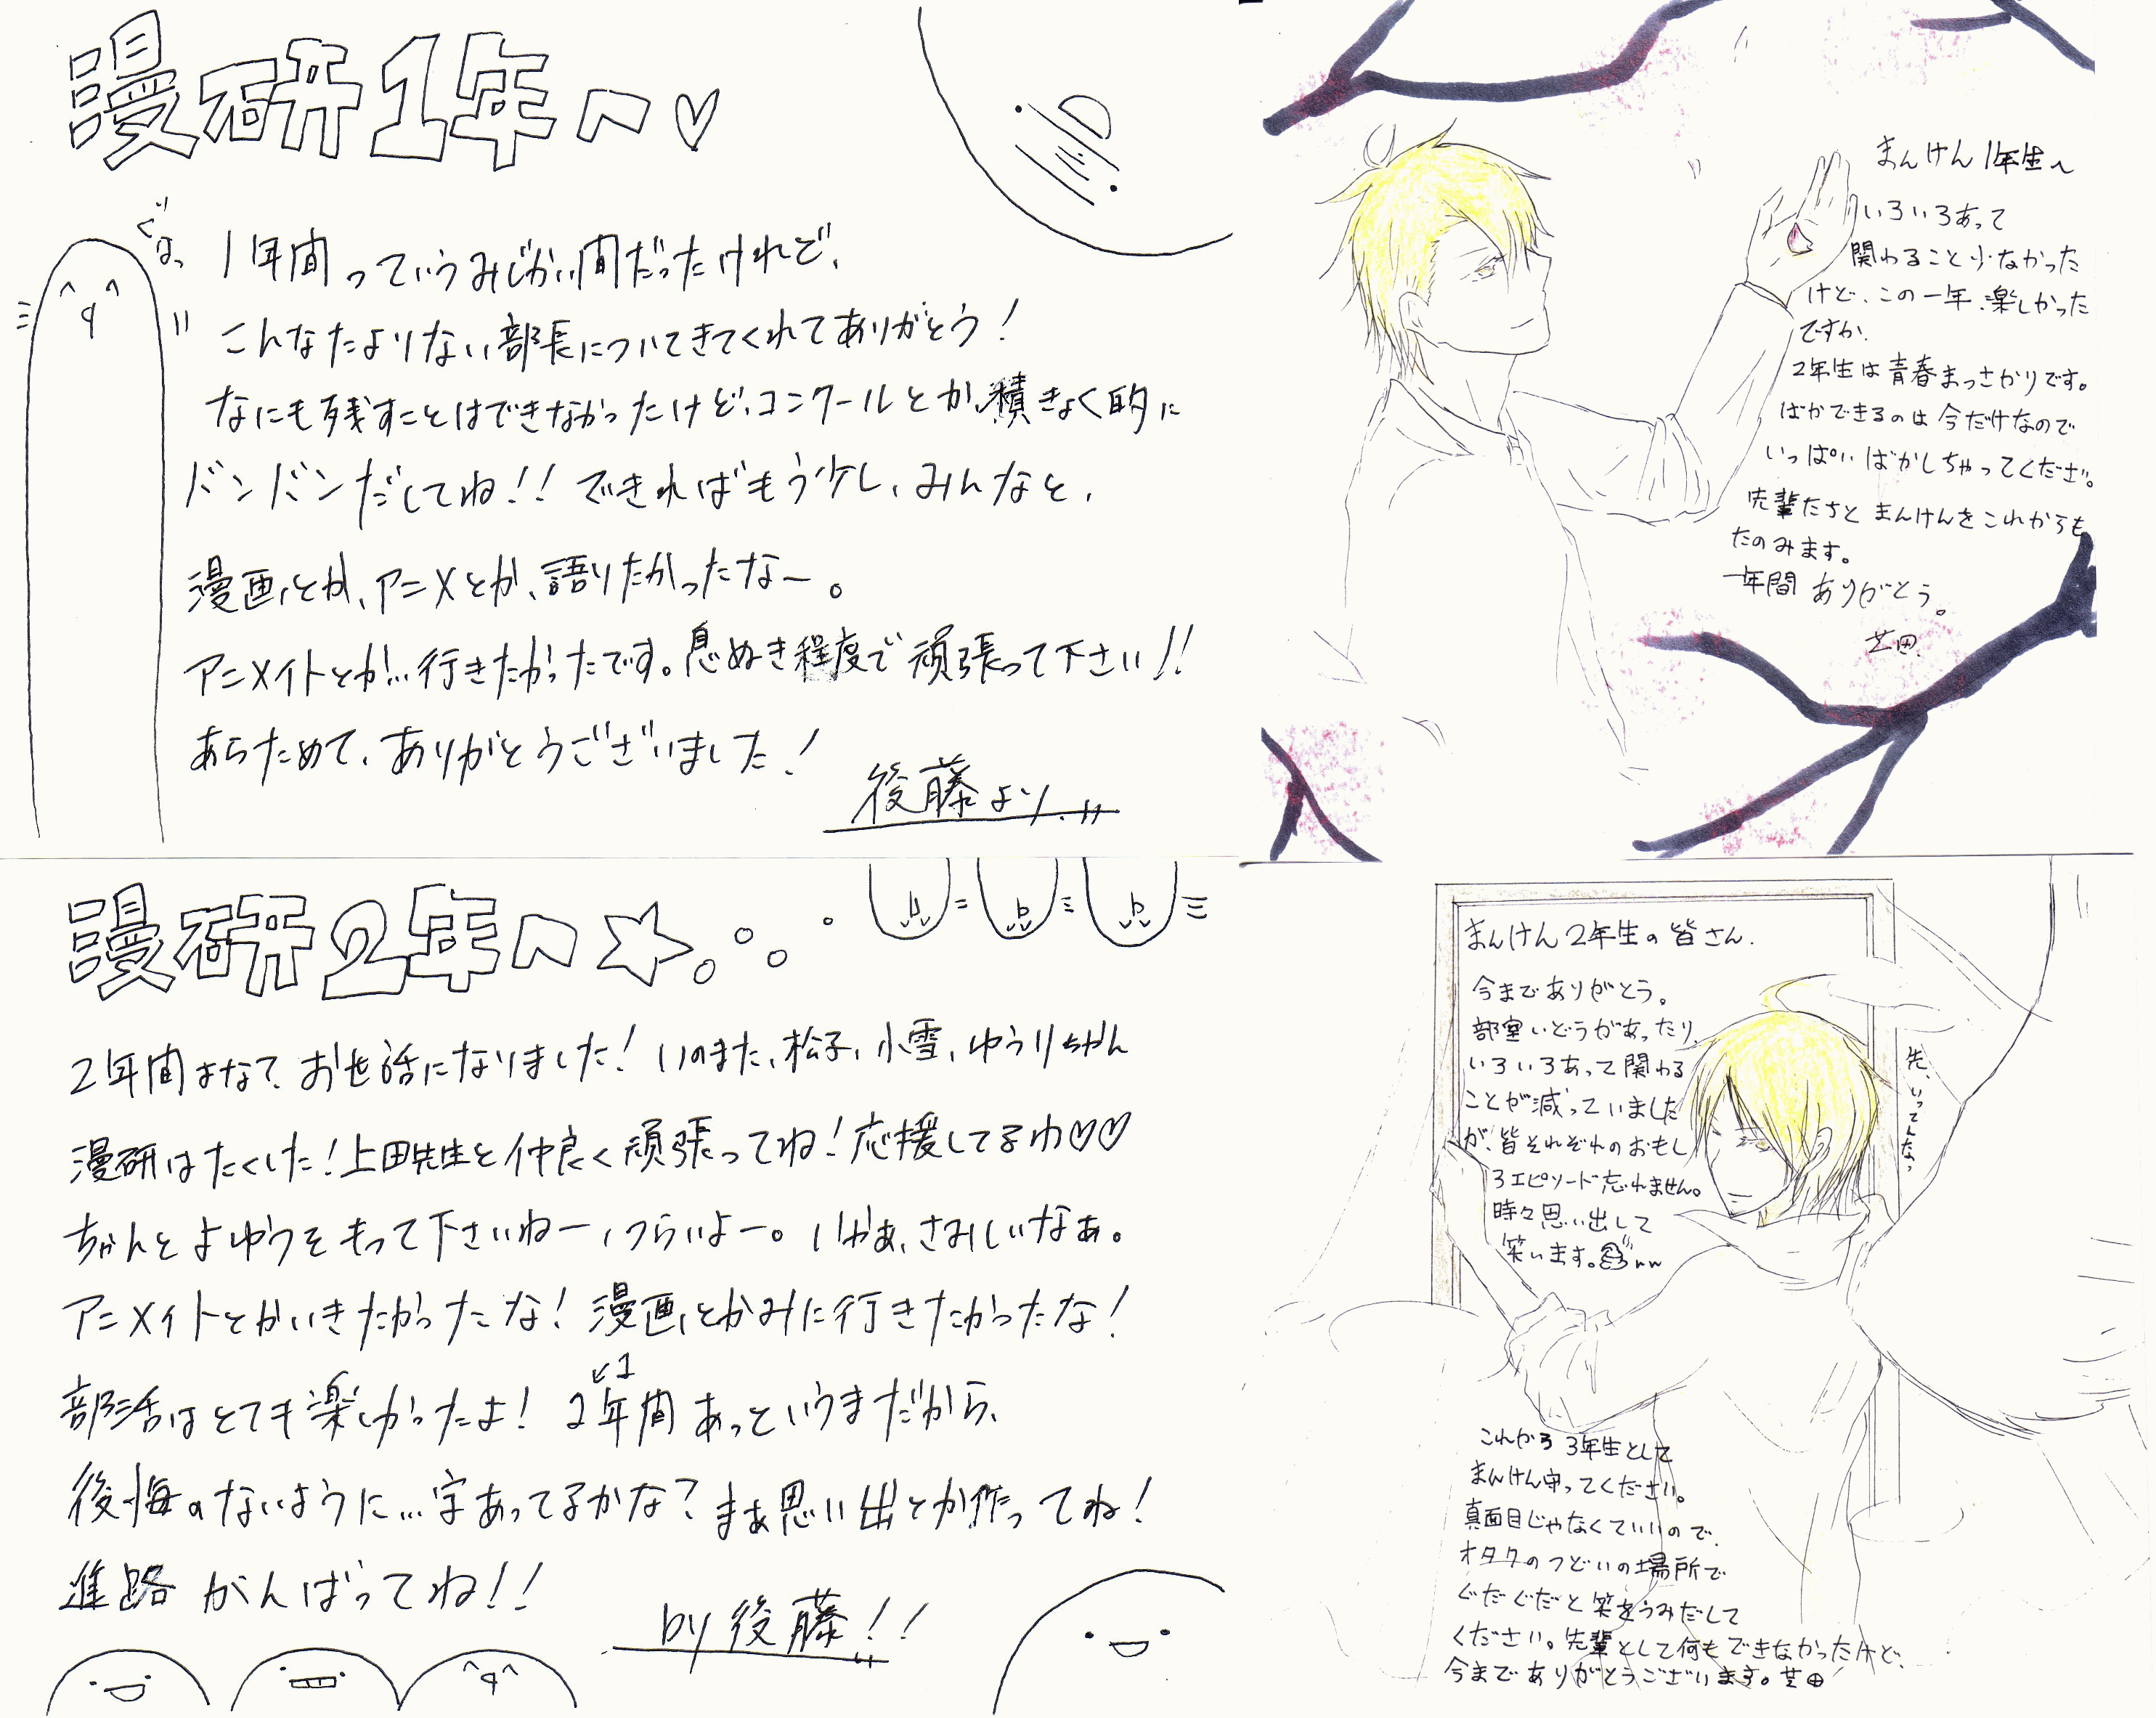 漫研1年へ♡
ぐはっ
1年間っていうみじかい間だったけれど、
こんなたよりない部長についてきてくれてありがとう!
なにも残すことはできなかったけど、コンクールとか、積きょく的に
ドンドンだしてね!! できればもう少し、みんなと、
漫画とか、アニメとか、語りたかったなー。
アニメイトとか…行きたかったです。息ぬき程度で頑張って下さい!!
あらためて、ありがとうございました!
後藤より
まんけん1年生へ
いろいろあって
関わること少なかった
けど、この一年、楽しかった
ですか。
2年生は青春まっさかりです。
ばかできるのは今だけなので
いっぱいばかしちゃってくださ。
先輩たちとまんけんをこれからも
たのみます。
一年間ありがとう。
芝田
漫研2年へ☆
2年間お世話になりました! いのまた、松子、小雪、ゆうりちゃん
漫研はたくした! 上田先生と仲良く頑張ってね! 応援してるわ♡♡
ちゃんとよゆうをもって下さいねー、つらいよー。いやぁ、さみしいなぁ。
アニメイトとかいきたかったな! 漫画とかみに行きたかったな!
部活はとても楽しかったよ! 2年間あっというまだから、
と1
後悔のないように…字あってるかな? まぁ思い出とか作ってね!
進路がんばってね!!
by後藤!!
まんけん2年生の皆さん.
今までありがとう。
部室いどうがあったり、
いろいろあって関わる
ことが減っていました
が、皆それぞれのおもし
ろエピソード忘れません。
時々思い出して
笑います。ww
先、いってんなっ
これから3年生として
まんけん守ってください。
真面目じゃなくていいので、
オタクのつどいの場所で
ぐだぐだと笑をうみだして
ください。先輩として何もできなかったけど、
今までありがとうございます。芝田